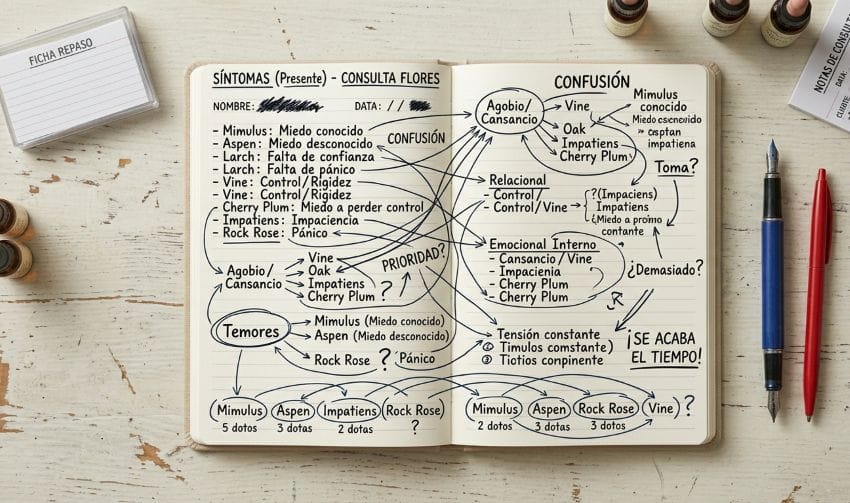 FICHA REPASO
SÍNTOMAS (Presente) - CONSULTA FLORES
NOMBRE:
DATA: / /
- Mimulus: Miedo conocido
- Aspen: Miedo desconocido
- Larch: Falta de confianza
- Larch: Falta de pánico
- Vine: Control/Rigidez
- Vine: Control/Rigidez
- Cherry Plum: Miedo a perder control
- Impatiens: Impaciencia
- Rock Rose: Pánico
CONFUSIÓN
Agobio/
Cansancio
Vine
Oak
Impatiens
Cherry Plum ?
PRIORIDAD?
Temores
- Mimulus (Miedo conocido)
- Aspen (Miedo desconocido)
- Rock Rose ? Pánico
Mimulus
5 dotos
Aspen
3 dotas
Impatiens
2 dotas
(Rock Rose)
?
CONFUSIÓN
Agobio/
Cansancio
Vine
Oak
Impatiens
Cherry Plum
Mimulus
conocido
Miedo
impatiena
Toma?
Relacional
- Control/
- Control/Vine →
?(Impaciens)
Impatiens
¿Miedo a
contante
Emocional Interno
- Cansancio/Vine
- Impacienia
- Cherry Plum
- Cherry Plum
¿Demasiado?
Tensión constante
Timulos comstante)
③ Tiotios conpinente
¡SE ACABA
EL TIEMPO!
Mimulus
2 dotos
Aspen
3 dotas
Rock Rose
3 dotos
(Vine) ?
NOTAS DE CONSULT
DATA:
CLIENTE: